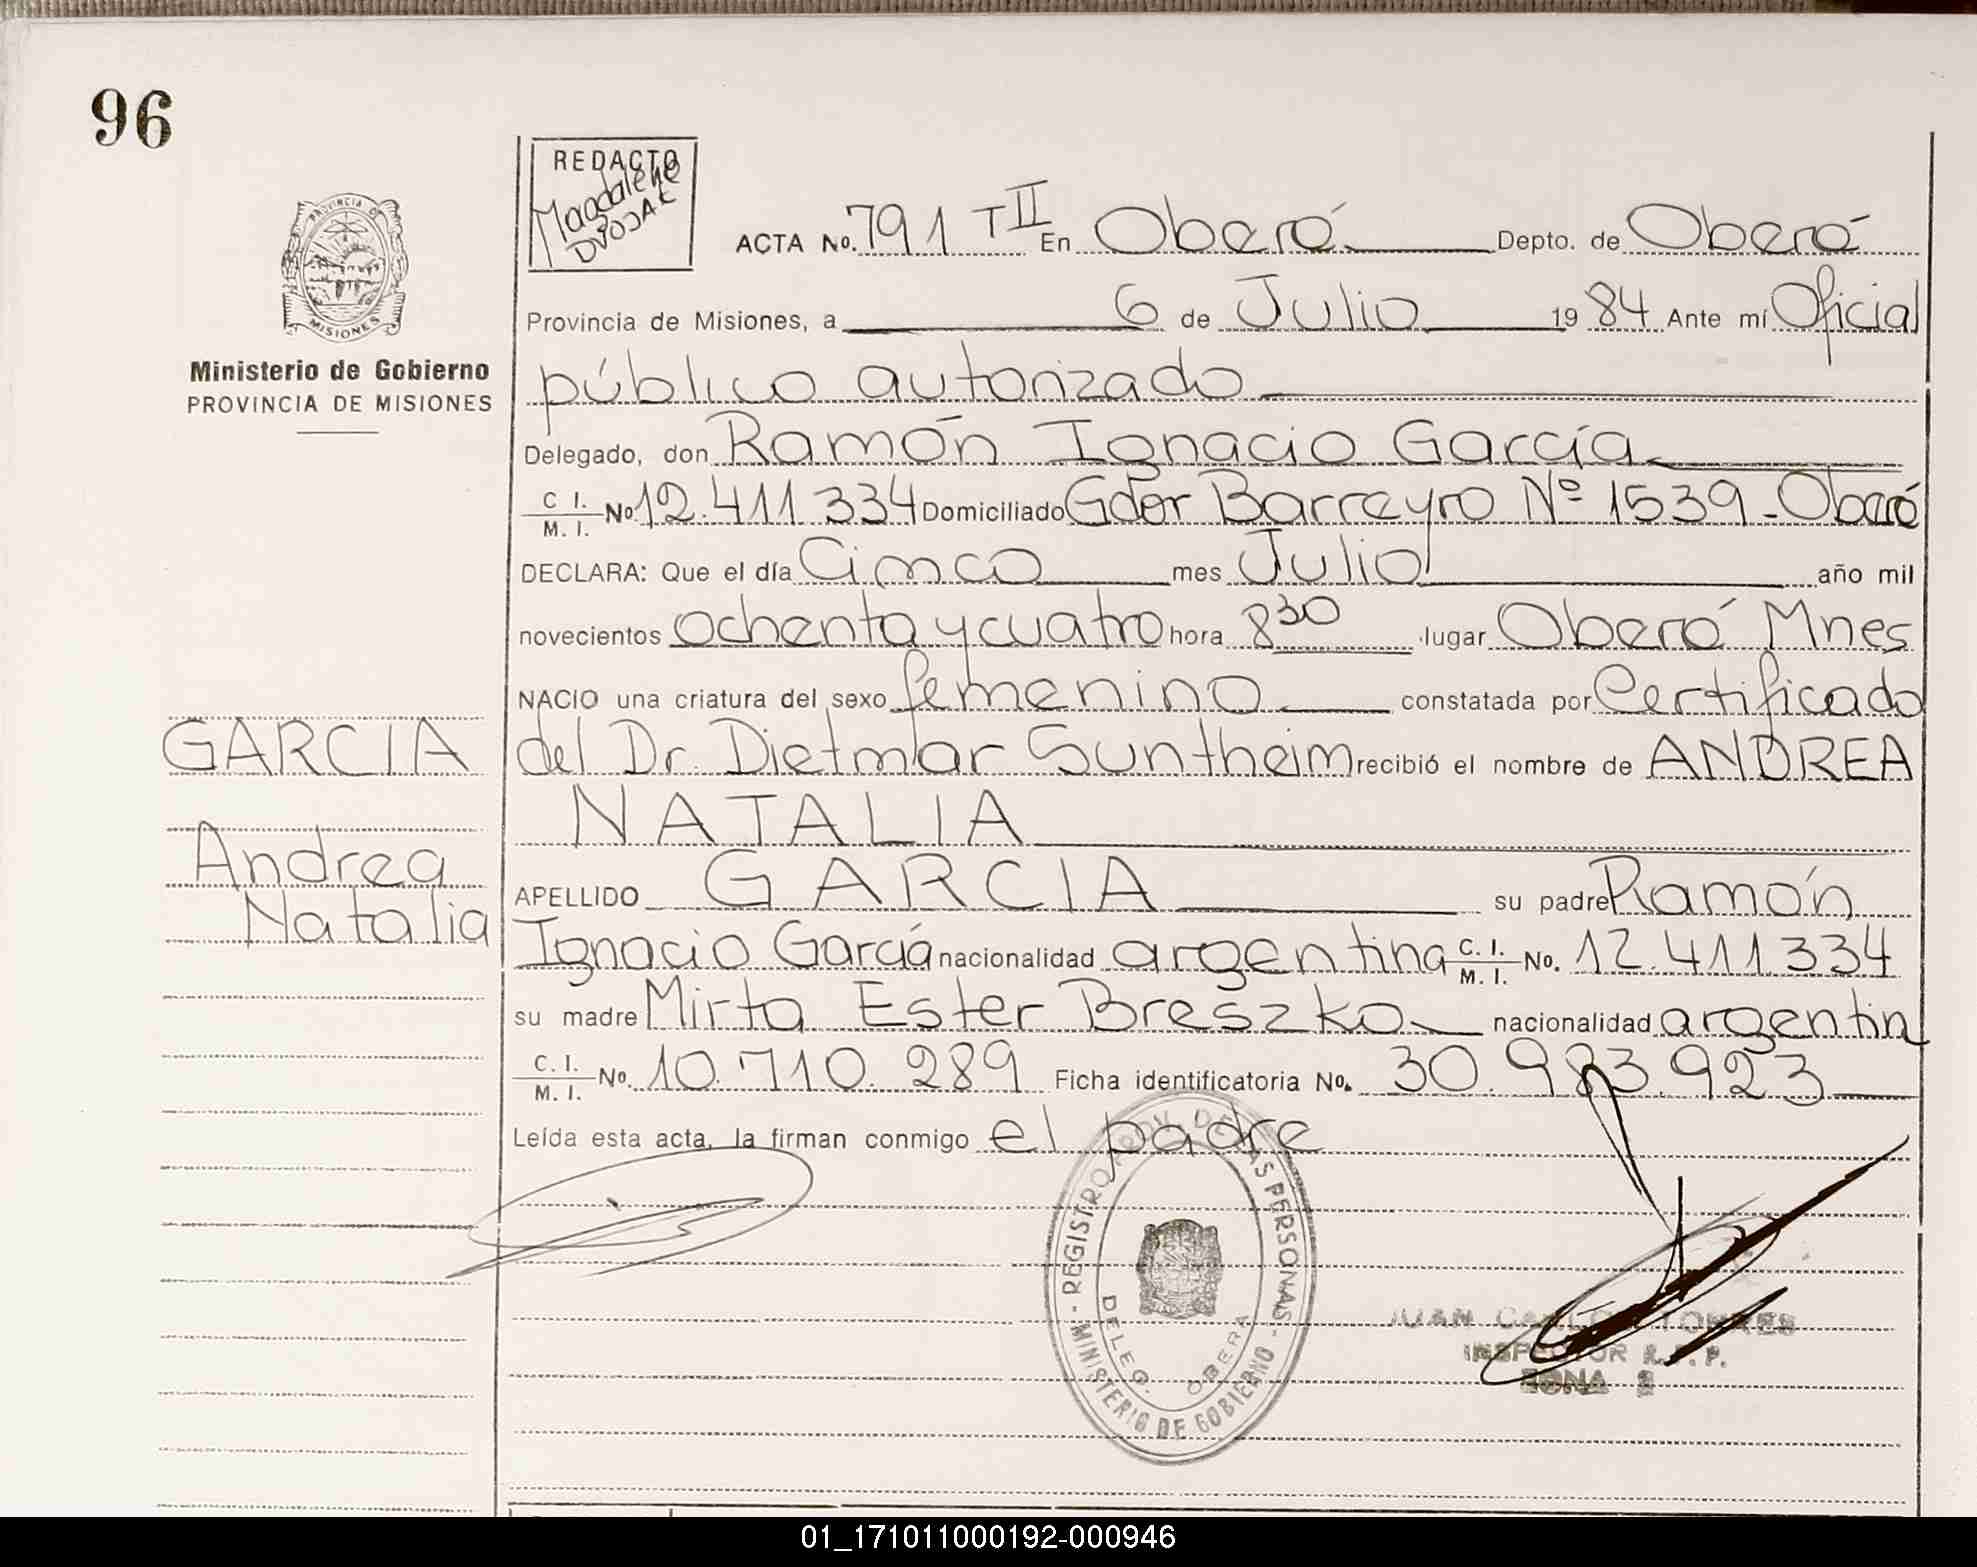 96
REDACTO
Magdalena
DVOJAK
ACTA No. 791 T II En Oberá Depto. de Oberá
PROVINCIA DE
MISIONES
Provincia de Misiones, a 6 de Julio 1984 Ante mí Oficial
Ministerio de Gobierno
PROVINCIA DE MISIONES
público autorizado
Delegado, don Ramón Ignacio García
C. I. / M. I. No. 12.411.334 Domiciliado Gdor Barreyro Nº 1539 - Oberá
DECLARA: Que el día Cinco mes Julio año mil
novecientos ochenta y cuatro hora 8 30 lugar Oberá Mnes
NACIO una criatura del sexo femenino constatada por Certificado
GARCIA
del Dr. Dietmar Suntheim recibió el nombre de ANDREA
NATALIA
Andrea
Natalia
APELLIDO GARCIA su padre Ramón
Ignacio García nacionalidad argentina C. I. / M. I. No. 12.411334
su madre Mirta Ester Breszko nacionalidad argentin
C. I. / M. I. No. 10.710.289 Ficha identificatoria No. 30.983.923
Leída esta acta, la firman conmigo el padre
REGISTRO PROV. DE LAS PERSONAS
DELEG. OBERA
MINISTERIO DE GOBIERNO
JUAN CARLOS TORRES
INSPECTOR R. P. P.
ZONA 2
01_171011000192-000946